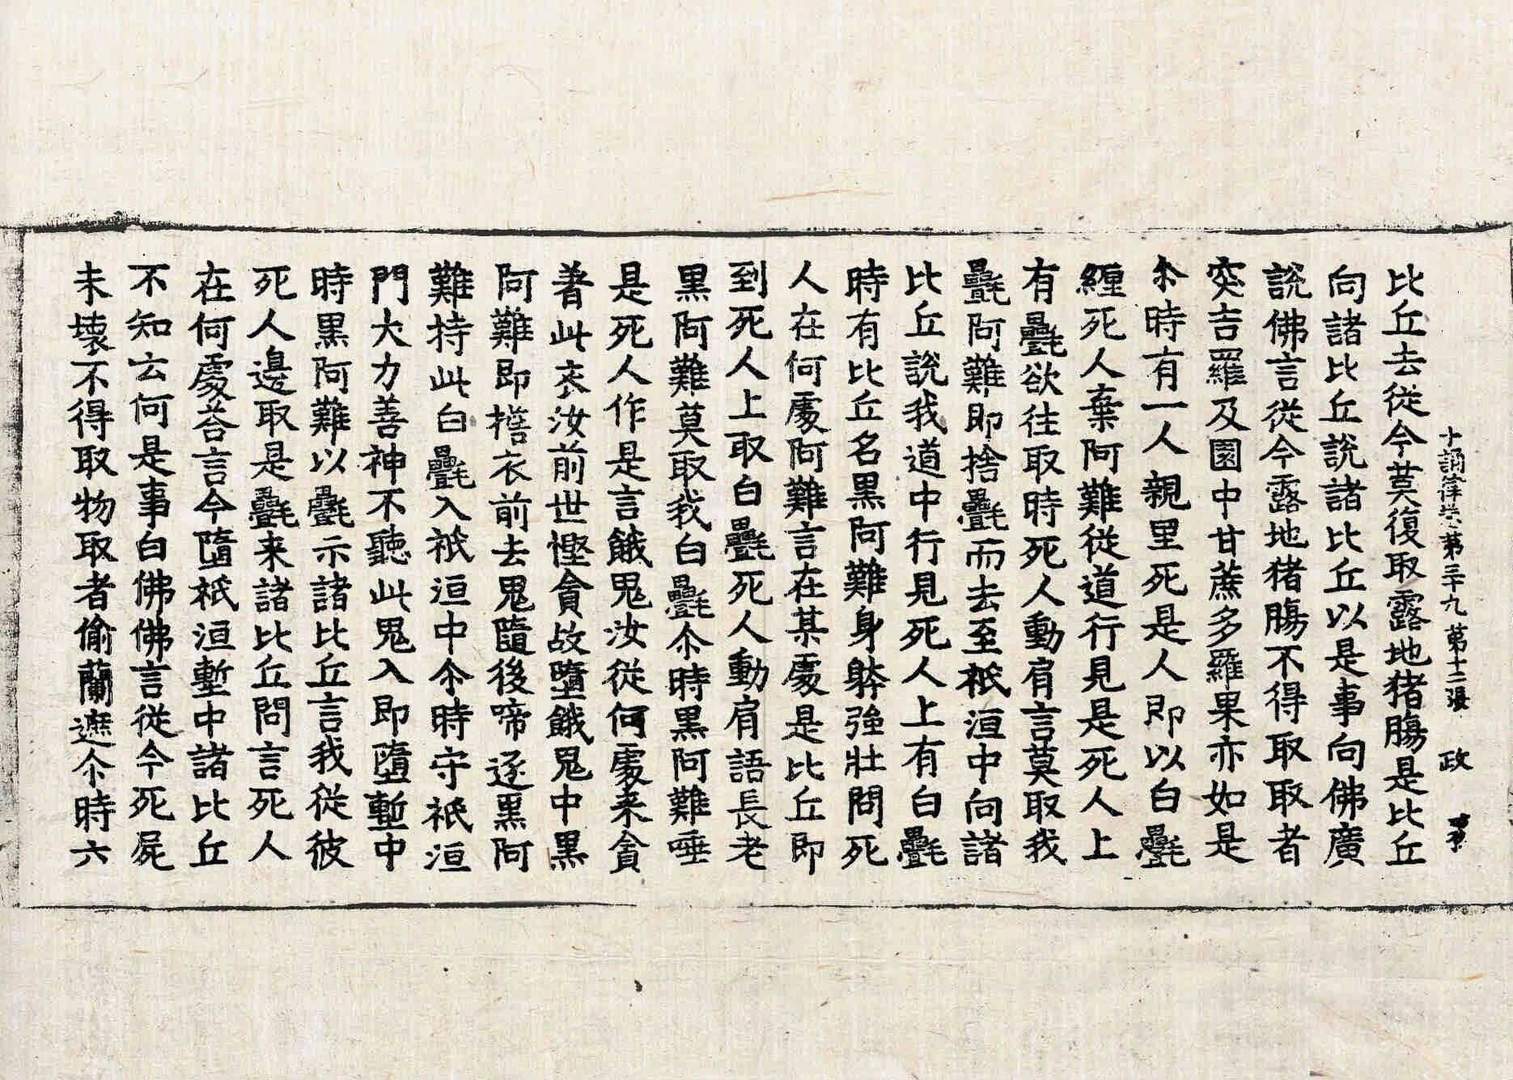 十誦律卷第三十九 第十二張 政
比丘去從今莫復取露地猪膓是比丘
向諸比丘說諸比丘以是事向佛廣
說佛言從今露地猪膓不得取取者
突吉羅及園中甘蔗多羅果亦如是
尒時有一人親里死是人即以白㲲
纏死人棄阿難從道行見是死人上
有㲲欲往取時死人動肩言莫取我
㲲阿難即捨㲲而去至祇洹中向諸
比丘說我道中行見死人上有白㲲
時有比丘名黑阿難身躰強壯問死
人在何處阿難言在某處是比丘即
到死人上取白㲲死人動肩語長老
黑阿難莫取我白㲲尒時黑阿難唾
是死人作是言餓鬼汝從何處来貪
著此衣汝前世慳貪故墮餓鬼中黑
阿難即擔衣前去鬼隨後啼逐黑阿
難持此白㲲入祇洹中尒時守祇洹
門大力善神不聽此鬼入即墮塹中
時黑阿難以㲲示諸比丘言我從彼
死人邊取是㲲来諸比丘問言死人
在何處荅言今墮祇洹塹中諸比丘
不知云何是事白佛佛言從今死屍
未壞不得取物取者偷蘭遮尒時六